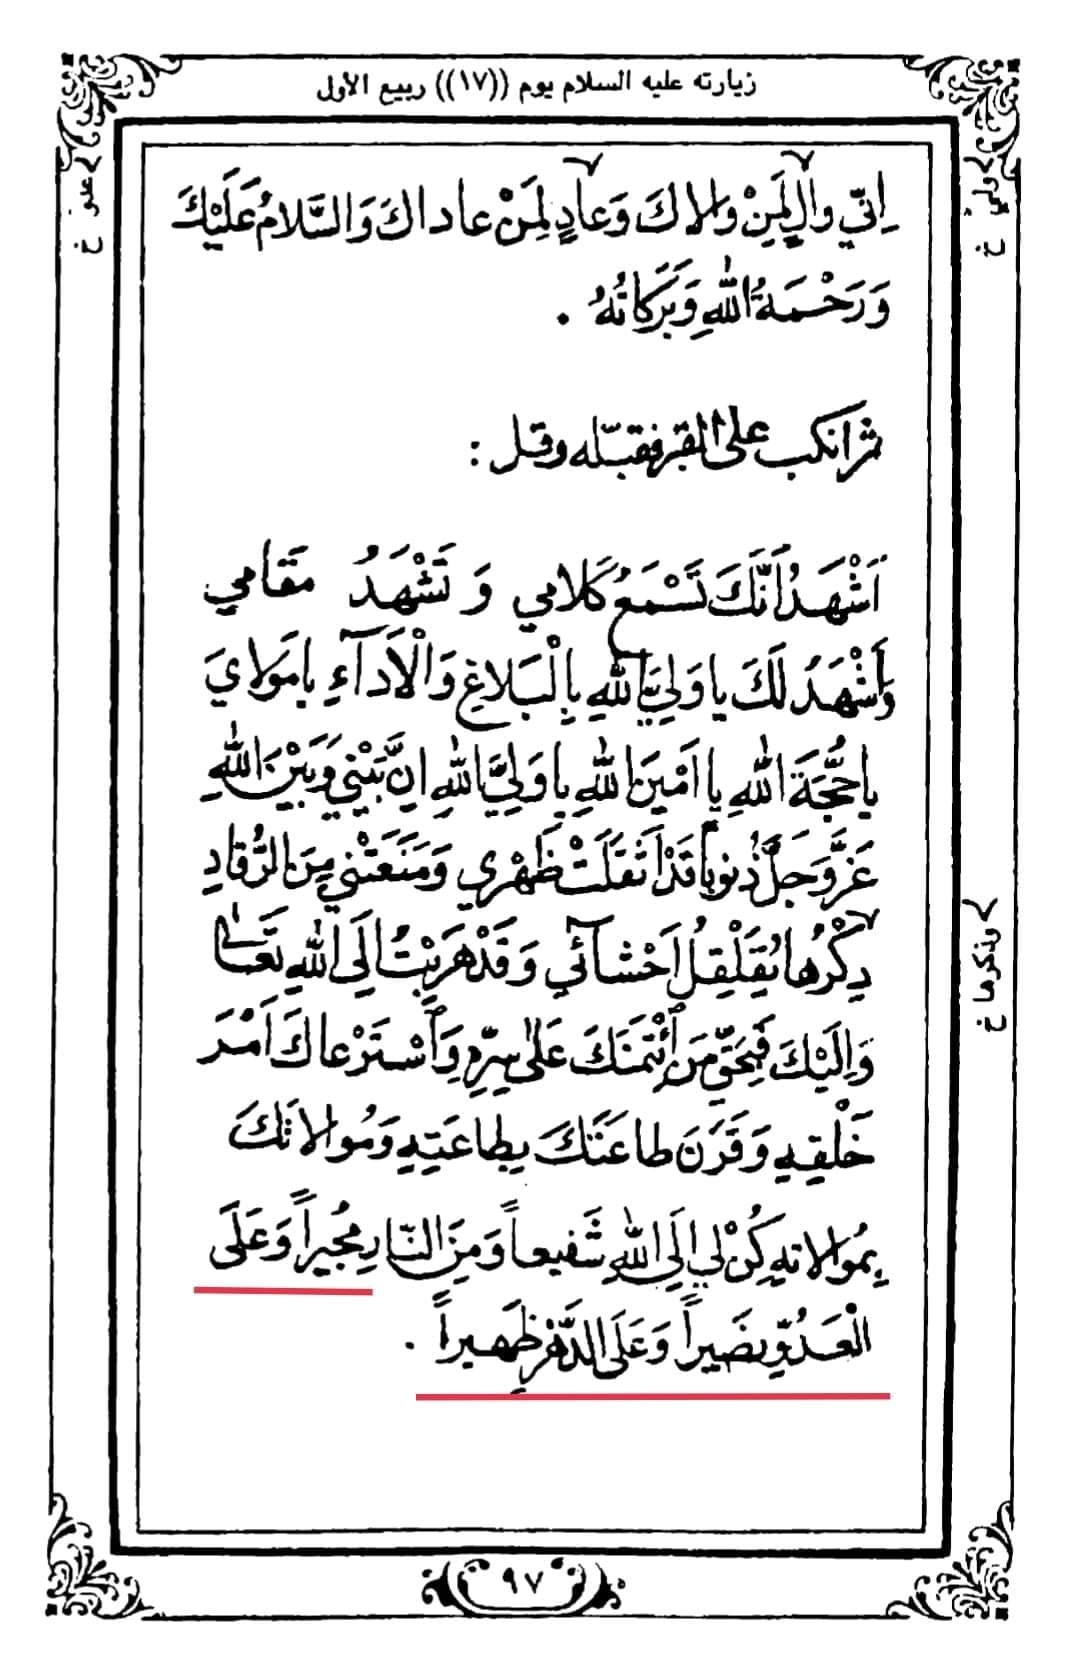 زيارته عليه السلام يوم ((١٧)) ربيع الأول
وليّ خ
عدوّ خ
اِنّي والٍ لِمَنْ والاكَ وَعادٍ لِمَنْ عاداكَ وَالسَّلامُ عَلَيْكَ
وَرَحْمَةُ اللهِ وَبَرَكاتُهُ .
ثم انكب على القبر فقبّله وقل :
اَشْهَدُ اَنَّكَ تَسْمَعُ كَلامي وَ تَشْهَدُ مَقامي
وَاَشْهَدُ لَكَ يا وَلِيَّ اللهِ بِالْبَلاغِ وَالْاَدآءِ يا مَوْلايَ
يا حُجَّةَ اللهِ يا اَمْينَ اللهِ يا وَلِيَّ اللهِ اِنَّ بَيْني وَبَيْنَ اللهِ
عَزَّ وَجَلَّ ذُنوباً قَدْ اَثْقَلَتْ ظَهْري وَمَنَعَتْني مِنَ الرُّقادِ
ذِكْرُها يُقَلْقِلُ اَحْشآئي وَقَدْ هَرَبْتُ اِلَى اللهِ تَعالىٰ
وبذكرها خ
وَاِلَيْكَ فَبِحَقِّ مَنِ ائْتَمَنَكَ عَلىٰ سِرِّهِ وَاسْتَرْعاكَ اَمْرَ
خَلْقِهِ وَقَرَنَ طاعَتَكَ بِطاعَتِهِ وَمُوالاتَكَ
بِمُوالاتِهِ كُنْ لي اِلَى اللهِ شَفيعاً وَمِنَ النّارِ مُجيراً وَعَلَى
الْعَدُوِّ نَصيراً وَعَلَى الدَّهْرِ ظَهيراً .
٩٧